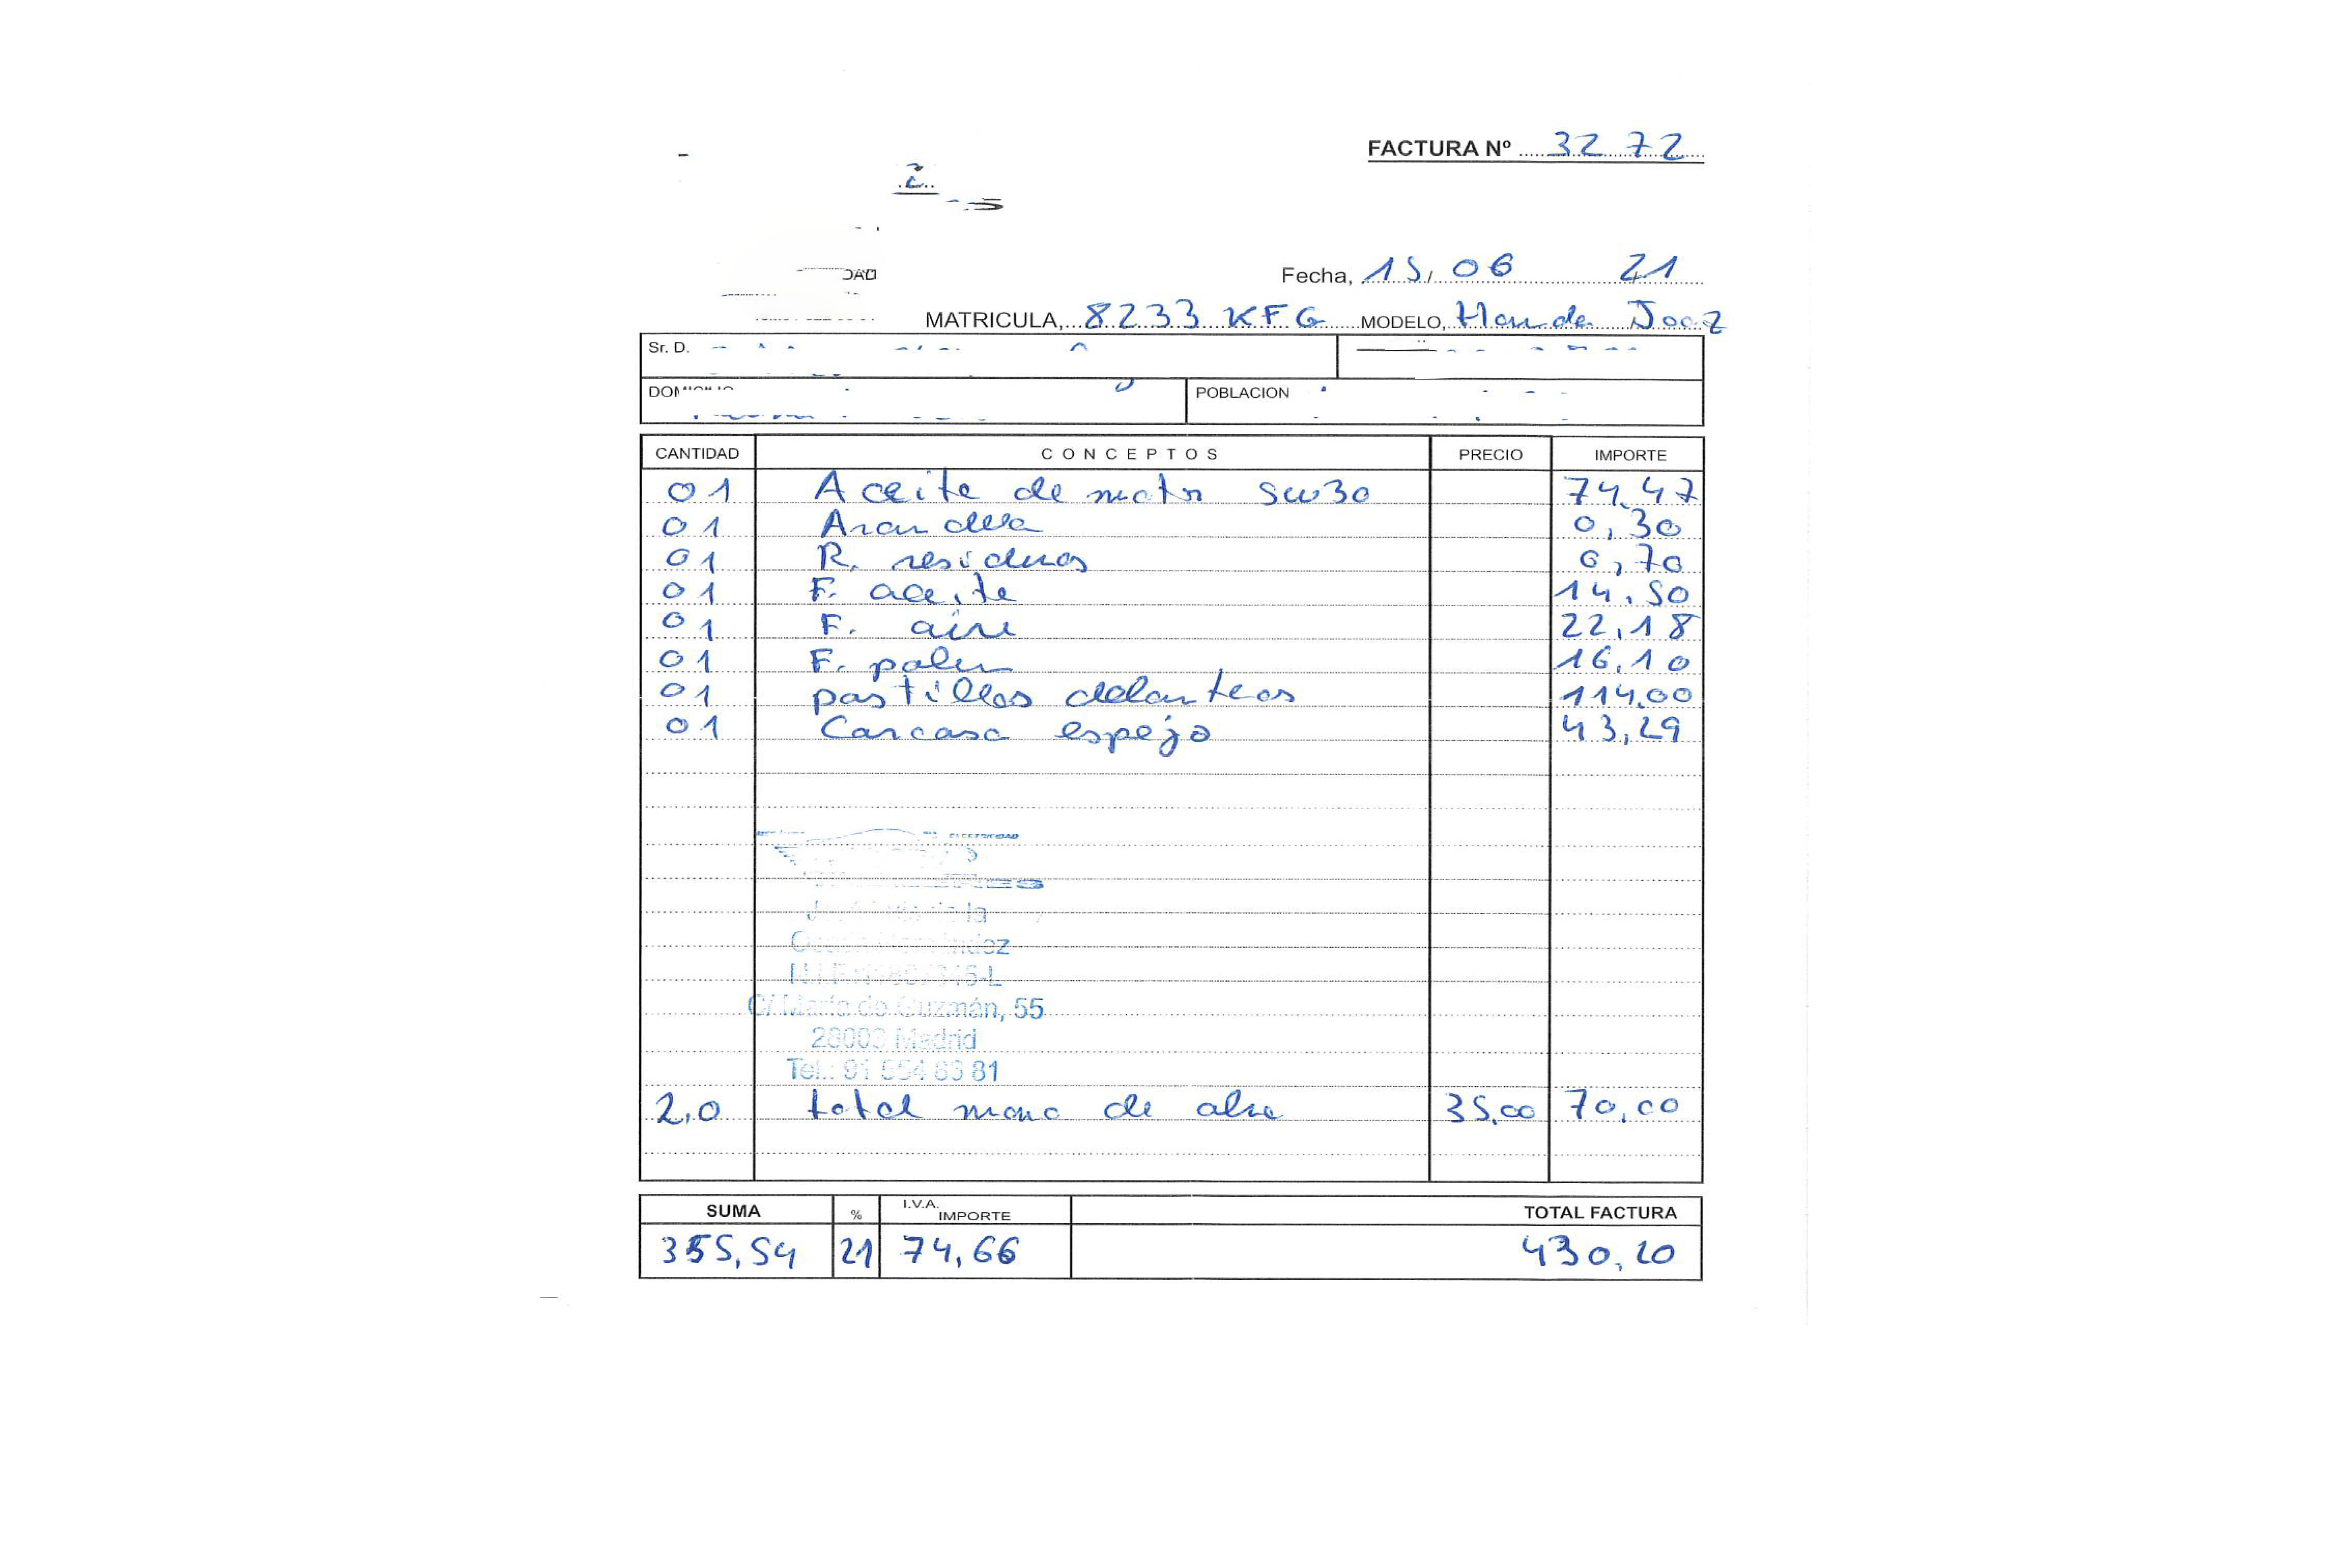 FACTURA Nº 3272
Fecha, 15, 06 21
MATRICULA, 8233 KFG MODELO, Honda Jazz
Sr. D.
POBLACION
CANTIDAD CONCEPTOS PRECIO IMPORTE
01 Aceite de motor 5w30 74,47
01 Arandela 0,30
01 R. residuos 0,70
01 F. aceite 14,50
01 F. aire 22,18
01 F. polen 16,10
01 pastillas delanteras 114,00
01 Carcasa espejo 43,29
ELECTRICIDAD
C/ María de Guzmán, 55
28003 Madrid
Tel.: 91 554 63 81
2,0 total mano de obra 35,00 70,00
SUMA % I.V.A. IMPORTE TOTAL FACTURA
355,54 21 74,66 430,20